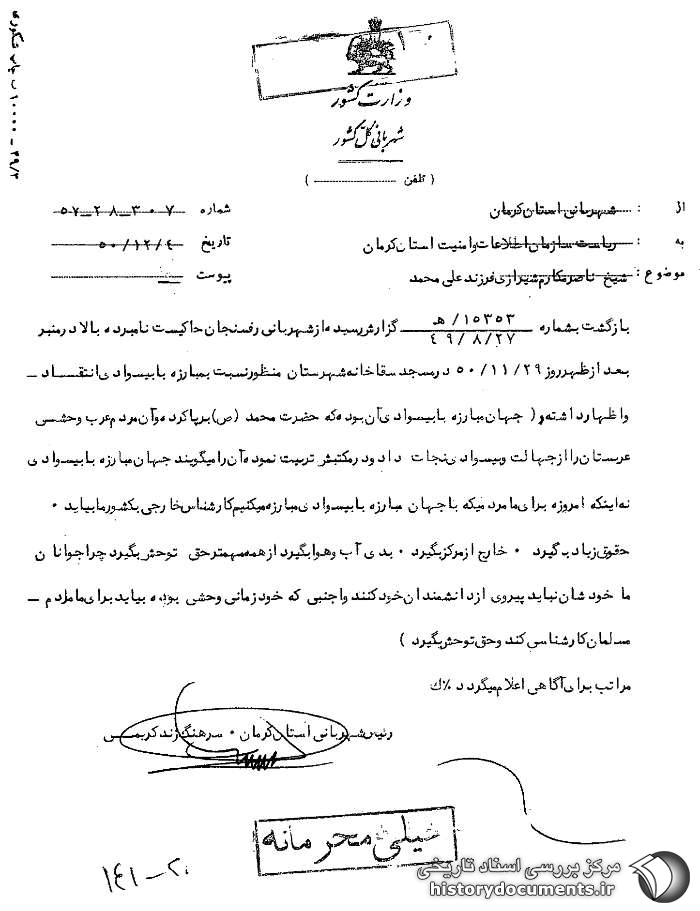 وزارت کشور
شهربانی کل کشور
( تلفن ــــــــ )
از : شهربانی استان کرمان
شماره ۳۰۷ـ۲۸ـ۵۷
به : ریاست سازمان اطلاعات و امنیت استان کرمان
تاریخ ۵۰/۱۲/۴
موضوع : شیخ ناصر مکارم شیرازی فرزند علی محمد
پیوست
بازگشت بشماره ۱۵۳۵۳/هـ ۴۹/۸/۲۷ گزارش رسیده از شهربانی رفسنجان حاکیست نامبرده بالا در منبر
بعد از ظهر روز ۵۰/۱۱/۲۹ در مسجد سقاخانه شهرستان منظور نسبت بمبارزه با بیسوادی انتقــاد ـ
و اظهار داشته ( جهان مبارزه با بیسوادی آن بود که حضرت محمد (ص) برپا کرده و آن مردم عرب وحشی
عربستان را از جهالت و بیسوادی نجات داد و در مکتبش تربیت نموده آن را میگویند جهان مبارزه با بیسوادی
نه اینکه امروزه برای ما مرد میکه با جهان مبارزه با بیسوادی مبارزه میکنیم کارشناس خارجی بکشور ما بیاید ۰
حقوق زیاد بگیرد ۰ خارج از مرکز بگیرد ۰ بدی آب و هوا بگیرد از همه مهمتر حق توحش بگیرد چرا جوانان
ما خودشان نباید پیروی از دانشمندان خود کنند و اجنبی که خود زمانی وحشی بوده بیاید برای ما مردم ـ
مسلمان کارشناسی کند و حق توحش بگیرد )
مراتب برای آگاهی اعلام میگردد ٪ك
رئیس شهربانی استان کرمان ۰ سرهنگ زند کریمی
خیلی محرمانه
۲۰ـ۱۴۱
مرکز بررسی اسناد تاریخی
historydocuments.ir